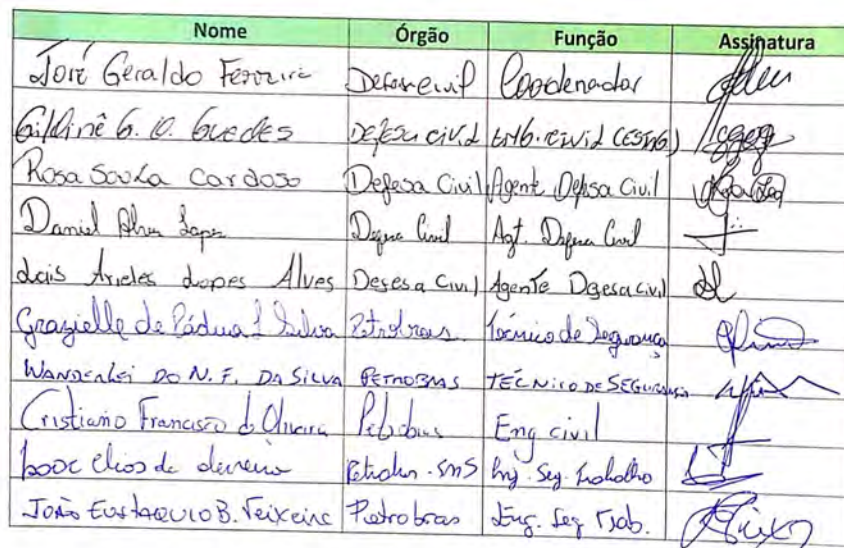 Nome Órgão Função Assinatura
José Geraldo Ferreira Defesa civil Coordenador
Gildinê G. O. Guedes Defesa civil Eng. civil (CESING)
Rosa Souza Cardoso Defesa Civil Agente Defesa Civil
Daniel Alves Lopes Defesa Civil Agt. Defesa Civil
Lais Arieles Lopes Alves Defesa Civil Agente Defesa civil
Grazielle de Pádua L Silva Petrobras Técnico de Segurança
WANDERLEI DO N. F. DA SILVA PETROBRAS TÉCNICO DE SEGURANÇA
Cristiano Francisco de Oliveira Petrobras Eng civil
de Petrobras - SMS Eng. Seg. Trabalho
João Eustáquio B. Teixeira Petrobras Eng. Seg Trab.